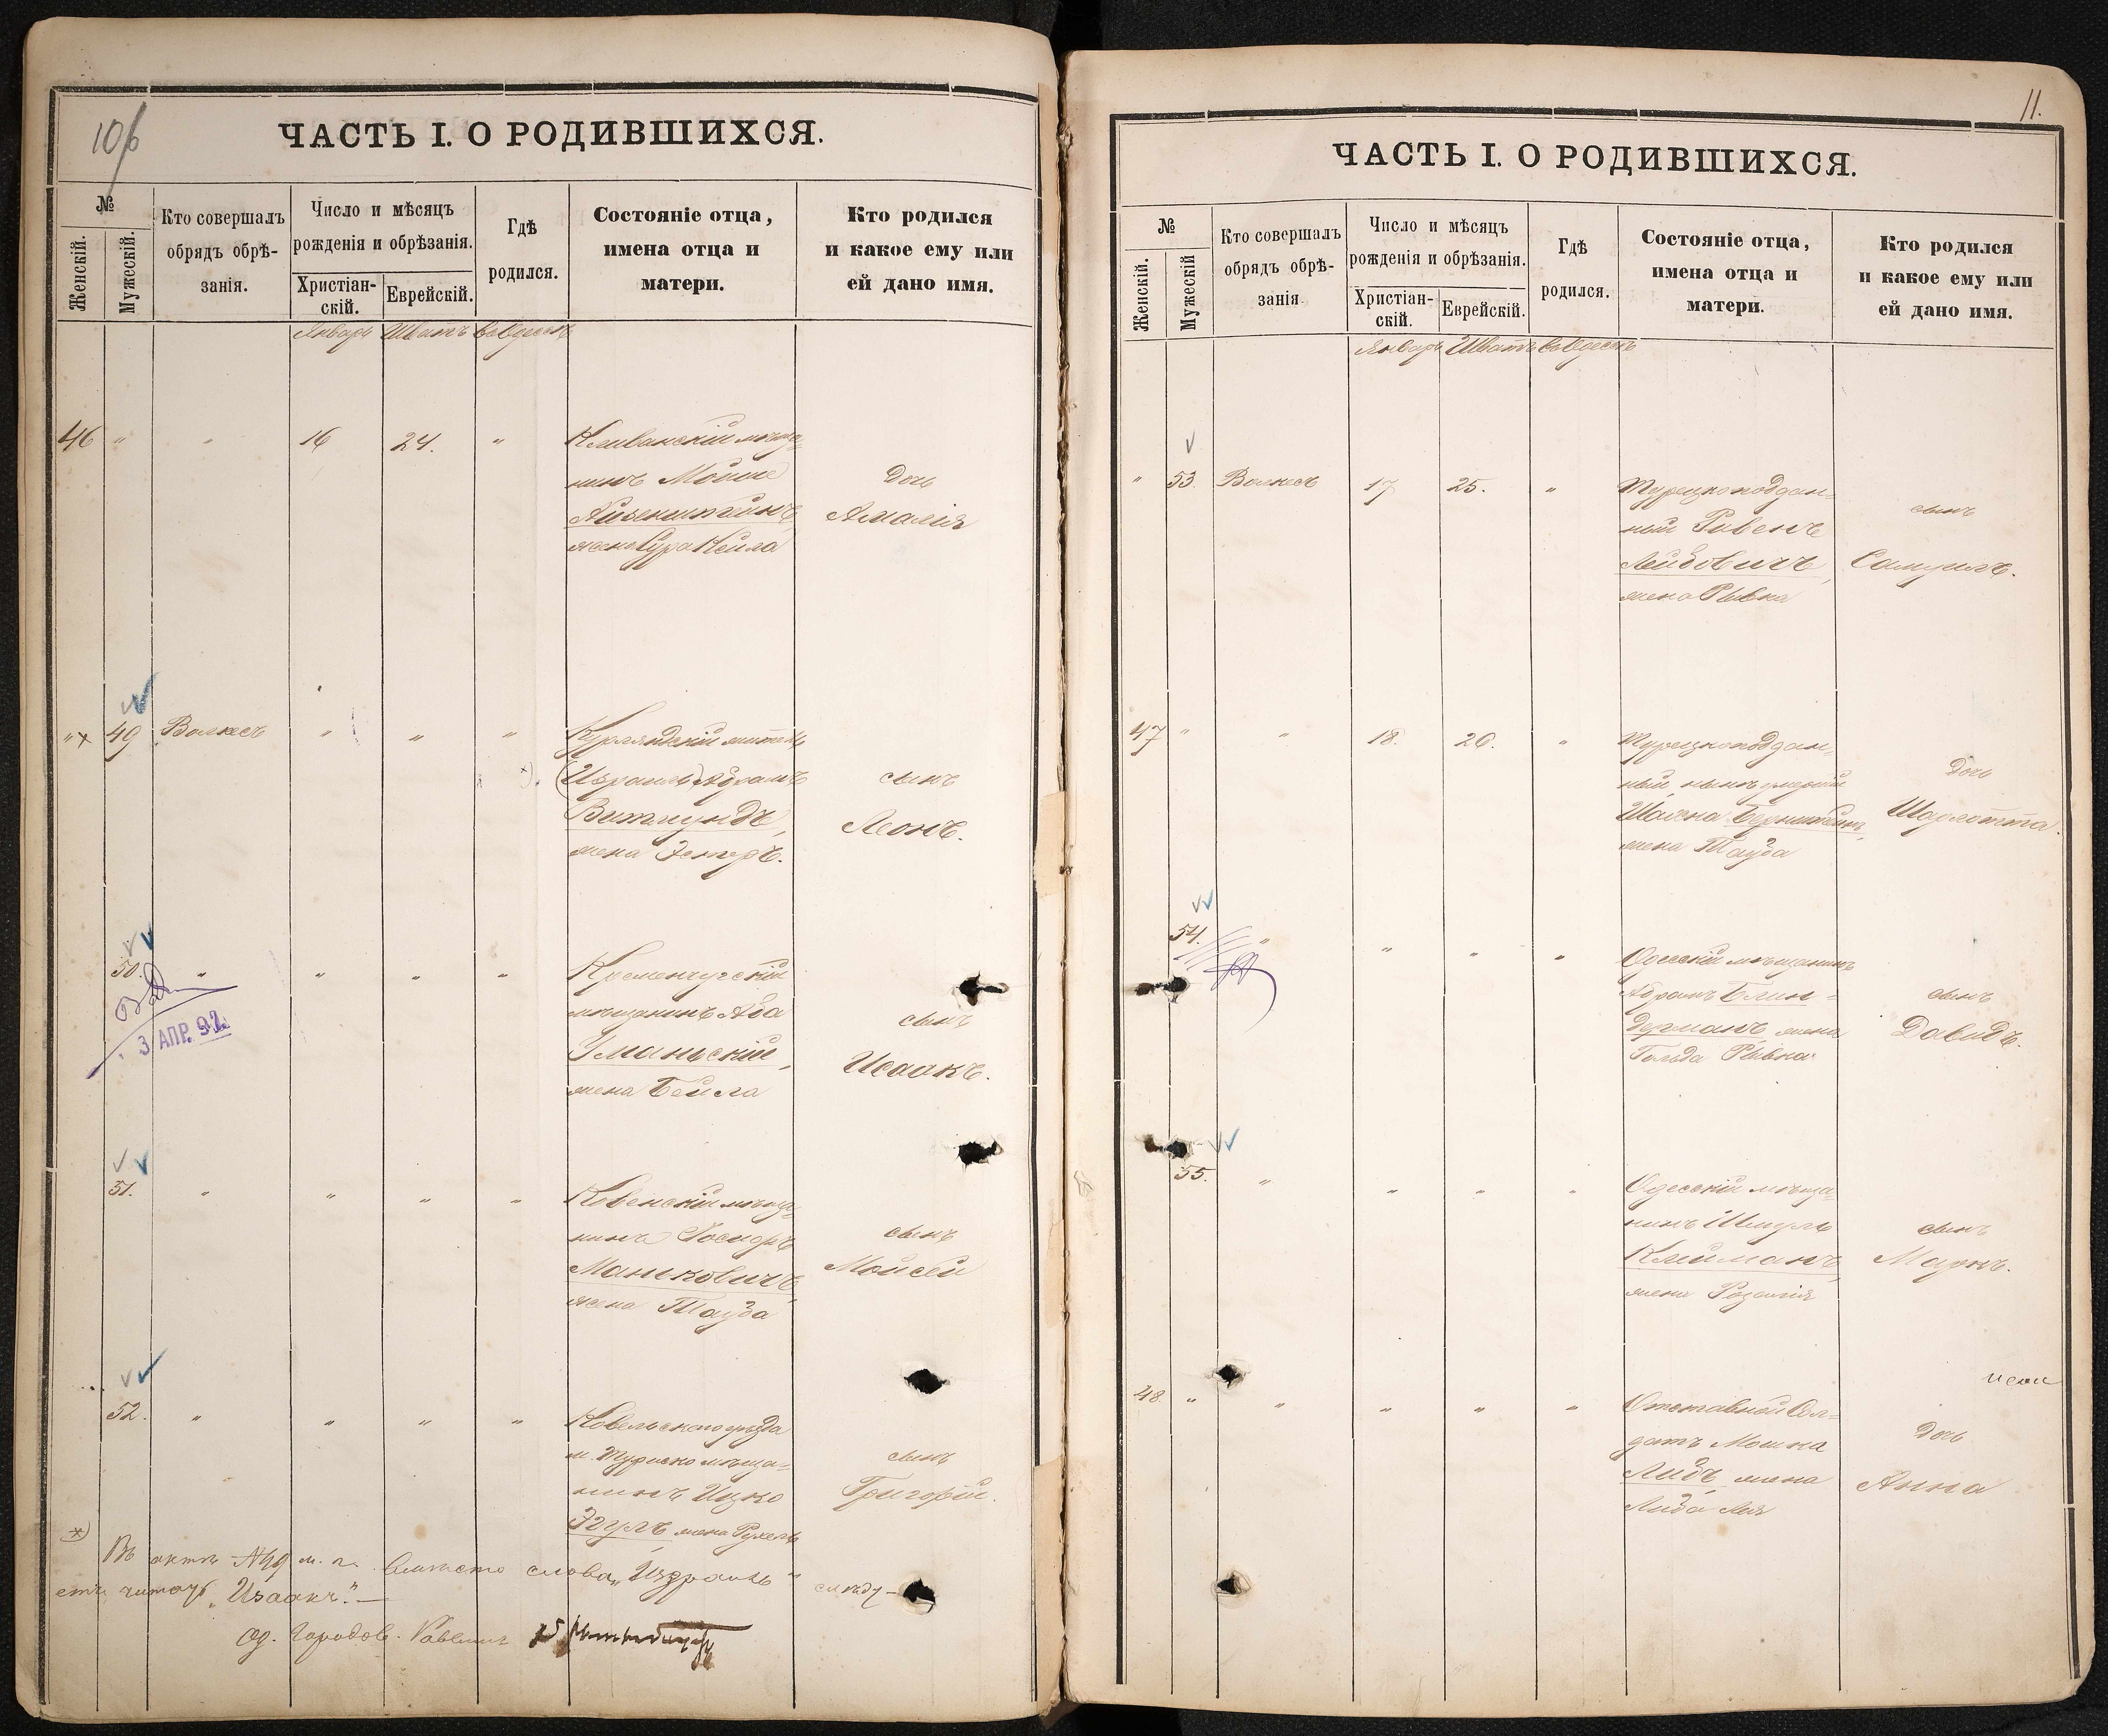 10/б
ЧАСТЬ I. О РОДИВШИХСЯ.
№
Женскій.
Мужескій.
Кто совершалъ
обрядъ обрѣ-
занія.
Число и мѣсяцъ
рожденія и обрѣзанія.
Христіан-
скій.
Еврейскій.
Гдѣ
родился.
Состояніе отца,
имена отца и
матери.
Кто родился
и какое ему или
ей дано имя.
Январь Шватъ въ Одессѣ
46 " " 16 24. "
Клеванскій мѣща-
нинъ Мойше
Айзенштейнъ
жена Сура Кейла
Дочь
Амалія
"х 49 Волкесъ " " "
Курляндскій житель
х). (Израиль) Абрамъ
Витмундъ,
жена Эстеръ.
сынъ
Леонъ.
50. " " " "
Кременчугскій
мѣщанинъ Аба
Уманьскій,
жена Бейла
сынъ
Исаакъ.
3 АПР. 92.
51. " " " "
Ковенскій мѣща-
нинъ
Маньковичъ,
жена Тауба
сынъ
Мойсей
52. " " " "
Ковельскаго уѣзда
м. Туриско мѣща-
нинъ Ицко
жена Рухель
сынъ
Григорій.
х)
Въ актѣ №49 м. п. вмѣсто слова „Израиль" слѣду-
етъ читать „Изаакъ". —
Од. Городов. Раввинъ
11.
ЧАСТЬ I. О РОДИВШИХСЯ.
№
Женскій.
Мужескій
Кто совершалъ
обрядъ обрѣ-
занія
Число и мѣсяцъ
рожденія и обрѣзанія.
Христіан-
скій.
Еврейскій.
Гдѣ
родился.
Состояніе отца,
имена отца и
матери.
Кто родился
и какое ему или
ей дано имя.
Январь Шватъ въ Одессѣ
" 53. Волкесъ 17 25. "
Турецкоподдан-
ный Рувенъ
Лейбовичъ,
жена Рывка
сынъ
Самуилъ.
47 " " 18. 26. "
Турецкоподдан-
ный, нынѣ умершій
Шаина Бернштейнъ,
жена Тауба
Дочь
Шарлотта.
54. " " " "
Одесскій мѣщанинъ
Абрамъ Блин-
дерманъ, жена
Гольда Рывка
сынъ
Давидъ.
55. " " " "
Одесскій мѣща-
нинъ Шмуль
Клейманъ,
жена Розалія
сынъ
Маркъ.
48. " " " " "
Отставной Сол-
датъ Мошка
Либъ жена
Либа Лея
Дочь
Анна